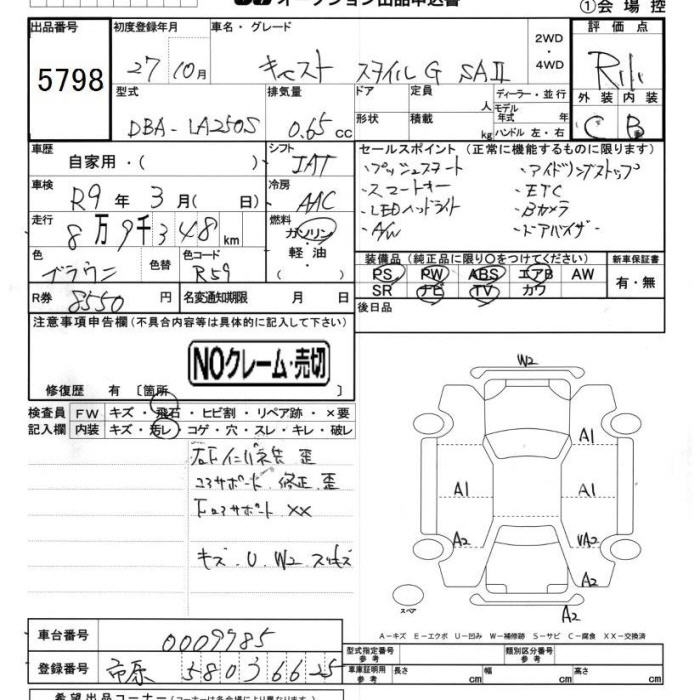 オークション出品申込書
①会場控
出品番号 5798
初度登録年月 27年10月
車名・グレード キャスト スタイルG SAⅡ
2WD・4WD
評価点 R
外装 C 内装 B
型式 DBA-LA250S
排気量 0.65 cc
ドア 定員 人 ディーラー・並行
形状 積載 kg モデル年式 年 ハンドル 左・右
車歴 自家用・( )
シフト IAT
車検 R9年3月( 日)
冷房 AAC
走行 8万9千348 km
燃料 ガソリン・軽油 ( )
色 ブラウン 色替 色コード R59
R券 8550円 名変通知期限 月 日
セールスポイント (正常に機能するものに限ります)
・プッシュスタート ・アイドリングストップ
・スマートキー ・ETC
・LEDヘッドライト ・Bカメラ
・A/W ・ドアバイザー
装備品 (純正品に限り○をつけてください) 新車保証書
PS PW ABS エアB AW 有・無
SR ナビ TV カワ
後日品
注意事項申告欄(不具合内容等は具体的に記入して下さい)
NOクレーム・売切
修復歴 有 〔箇所 〕
検査員 FW キズ・飛石・ヒビ割・リペア跡・×要
記入欄 内装 キズ・汚レ・コゲ・穴・スレ・キレ・破レ
コアサポート 修正 歪
下コアサポート XX
キズ・U・W2
W2
A1
A1 A1
A2 A2
A2
A2
スペア
A-キズ E-エクボ U-凹み W-補修跡 S-サビ C-腐食 XX-交換済
車台番号 0009985
登録番号 市原 580 3 6625
型式指定番号 参考 類別区分番号 参考
車庫証明用 参考 長さ cm 幅 cm 高さ cm
希望出品コーナー(コーナーは各会場により異なります)